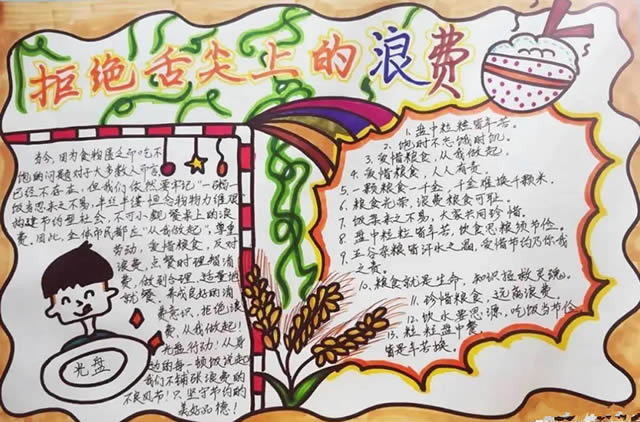 拒绝舌尖上的浪费
当今,因为食物匮乏而吃不
饱的问题对于大多数人而言
已经不存在,但我们依然要牢记"一粥一
饭当思来之不易,半丝半缕恒念物力维艰
构建节约型社会,不可小觑餐桌上的浪
费,因此,全体市民都应"从我做起",尊重
劳动,爱惜粮食,反对
浪费,点餐时理智消
费,做到合理,适量地
就餐,养成良好的消
费意识,拒绝浪
费,从我做起!
光盘行动!从身
边的每一顿饭说起
我们不铺张浪费的
不良风节!只坚守节约的
美好品德!
光盘
1、盘中粒粒皆辛苦。
2、饱时不忘饿时饥。
3、爱惜粮食,从我做起。
4、爱惜粮食,人人有责。
5、一颗粮食一千金,千金难换千颗米。
6、粮食光荣,浪费粮食可耻。
7、饭菜来之不易,大家共同珍惜。
8、盘中粒粒皆辛苦,饮食思粮须节俭。
9、五谷杂粮皆汗水之晶,爱惜节约乃你我
之责。
10、粮食就是生命,知识拯救灵魂。
11、珍惜粮食,远离浪费。
12、饮水要思源,吃饭当节俭
13、粒粒盘中餐,
皆是辛苦换。